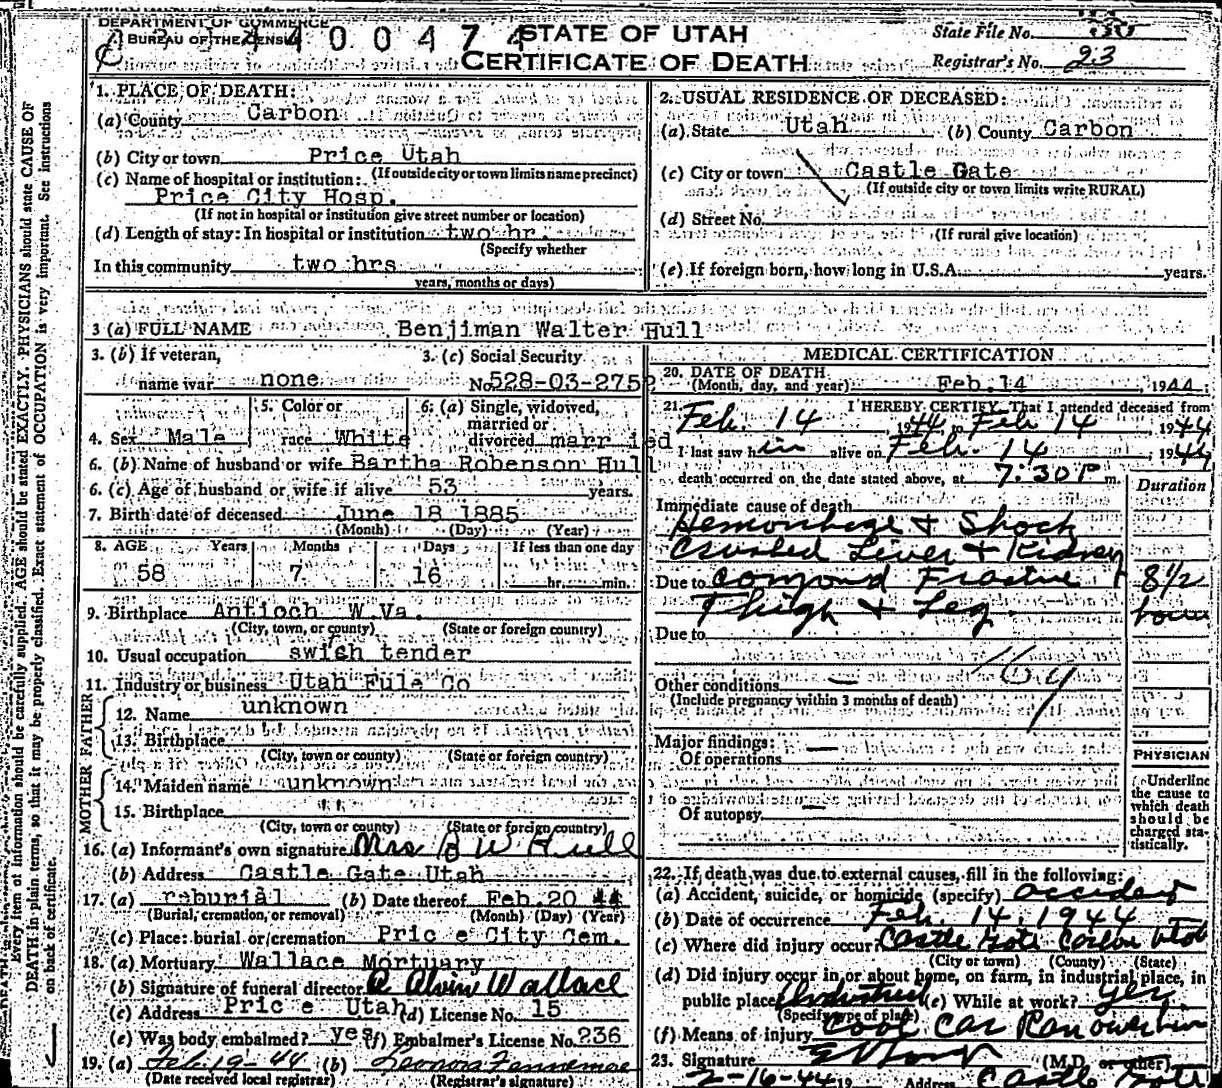 DEPARTMENT OF COMMERCE
BUREAU OF THE CENSUS
4 4 0 0 4 7 4
STATE OF UTAH
CERTIFICATE OF DEATH
State File No.
Registrar's No. 23
1. PLACE OF DEATH:
(a) County Carbon
(b) City or town Price Utah
(If outside city or town limits name precinct)
(c) Name of hospital or institution:
Price City Hosp.
(If not in hospital or institution give street number or location)
(d) Length of stay: In hospital or institution two hr.
(Specify whether
In this community two hrs
years, months or days)
2. USUAL RESIDENCE OF DECEASED:
(a) State Utah (b) County Carbon
(c) City or town Castle Gate
(If outside city or town limits write RURAL)
(d) Street No.
(If rural give location)
(e) If foreign born, how long in U.S.A. years.
3 (a) FULL NAME Benjiman Walter Hull
3. (b) If veteran,
name war none
3. (c) Social Security
No. 528-03-2752
4. Sex Male
5. Color or
race White
6. (a) Single, widowed,
married or
divorced married
6. (b) Name of husband or wife Bartha Robenson Hull
6. (c) Age of husband or wife if alive 53 years.
7. Birth date of deceased June 18 1885
(Month) (Day) (Year)
8. AGE Years Months Days If less than one day
58 7 16 hr. min.
9. Birthplace Antioch W.Va.
(City, town, or county) (State or foreign country)
10. Usual occupation swich tender
11. Industry or business Utah Fule Co
FATHER
12. Name unknown
13. Birthplace
(City, town or county) (State or foreign country)
MOTHER
14. Maiden name unknown
15. Birthplace " "
(City, town or county) (State or foreign country)
16. (a) Informant's own signature Mrs B W Hull
(b) Address Castle Gate Utah
17. (a) reburial (b) Date thereof Feb.20 44
(Burial, cremation, or removal) (Month) (Day) (Year)
(c) Place: burial or cremation Pric e City Cem.
18. (a) Mortuary Wallace Mortuary
(b) Signature of funeral director Alvin Wallace
(c) Address Pric e Utah (d) License No. 15
(e) Was body embalmed? yes (f) Embalmer's License No. 236
19. (a) Feb. 19-44 (b) Leonora
(Date received local registrar) (Registrar's signature)
MEDICAL CERTIFICATION
20. DATE OF DEATH
(Month, day, and year) Feb.14 1944.
21. I HEREBY CERTIFY, That I attended deceased from
Feb. 14, 1944 to Feb 14, 1944
I last saw him alive on Feb. 14, 1944
death occurred on the date stated above, at 7:30 P m.
Duration
Immediate cause of death
Hemorrhage + Shock
Crushed Liver + Kidney
Due to Compound Fracture 8 1/2
Thigh + Leg. hours
Due to
Other conditions —
(Include pregnancy within 3 months of death)
Major findings:
Of operations —
Of autopsy —
PHYSICIAN
Underline
the cause to
which death
should be
charged sta-
tistically.
22. If death was due to external causes, fill in the following:
(a) Accident, suicide, or homicide (specify) accident
(b) Date of occurrence Feb. 14, 1944
(c) Where did injury occur? Castle Gate Carbon Utah
(City or town) (County) (State)
(d) Did injury occur in or about home, on farm, in industrial place, in
public place? Industrial (e) While at work? yes
(Specify type of place)
(f) Means of injury Coal Car Ran over him
23. Signature (M.D. or other)
2-16-44 19 Address Castle
Every item of information should be carefully supplied. AGE should be stated EXACTLY. PHYSICIANS should state CAUSE OF
DEATH in plain terms, so that it may be properly classified. Exact statement of OCCUPATION is very important. See instructions
on back of certificate.